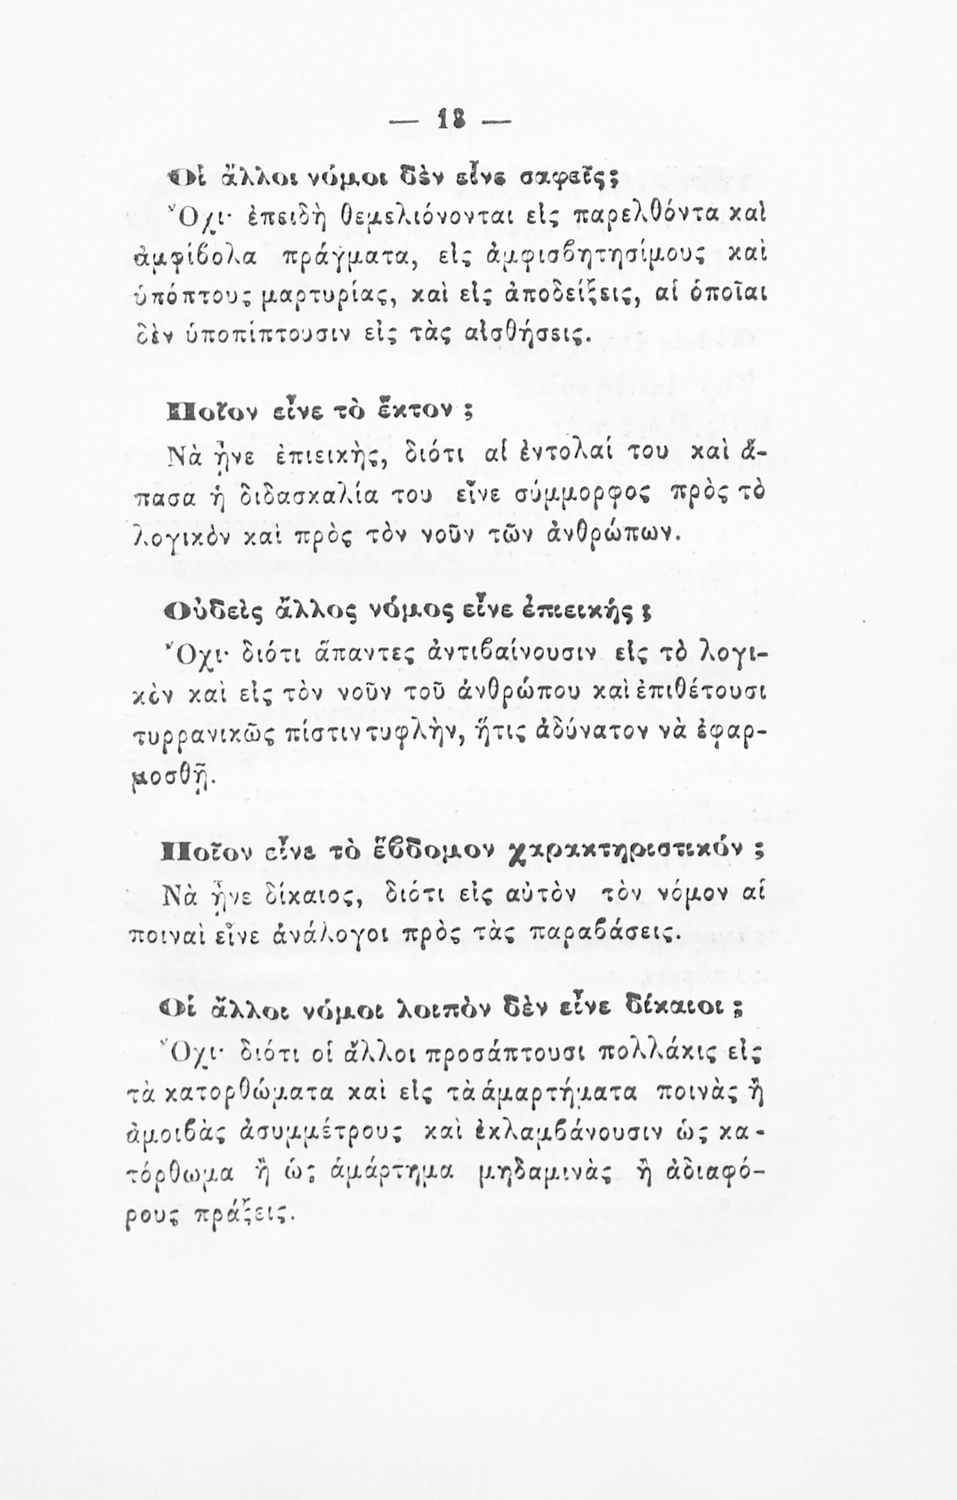 — 18 —
Οἱ ἄλλοι νόμοι δὲν εἶνε σαφεῖς;
Ὄχι· ἐπειδὴ θεμελιόνονται εἰς παρελθόντα καὶ
ἀμφίβολα πράγματα, εἰς ἀμφισβητησίμους καὶ
ὑπόπτους μαρτυρίας, καὶ εἰς ἀποδείξεις, αἱ ὁποῖαι
δὲν ὑποπίπτουσιν εἰς τὰς αἰσθήσεις.
Ποῖον εἶνε τὸ ἕκτον ;
Νὰ ᾖνε ἐπιεικὴς, διότι αἱ ἐντολαί του καὶ ἅ-
πασα ἡ διδασκαλία του εἶνε σύμμορφος πρὸς τὸ
λογικὸν καὶ πρὸς τὸν νοῦν τῶν ἀνθρώπων.
Οὐδεὶς ἄλλος νόμος εἶνε ἐπιεικής ;
Ὄχι· διότι ἅπαντες ἀντιβαίνουσιν εἰς τὸ λογι-
κὸν καὶ εἰς τὸν νοῦν τοῦ ἀνθρώπου καὶ ἐπιθέτουσι
τυρρανικῶς πίστιν τυφλὴν, ἥτις ἀδύνατον νὰ ἐφαρ-
μοσθῇ.
Ποῖον εἶνε τὸ ἕβδομον χαρακτηριστικόν ;
Νὰ ᾖνε δίκαιος, διότι εἰς αὐτὸν τὸν νόμον αἱ
ποιναὶ εἶνε ἀνάλογοι πρὸς τὰς παραβάσεις.
Οἱ ἄλλοι νόμοι λοιπὸν δὲν εἶνε δίκαιοι ;
Ὄχι· διότι οἱ ἄλλοι προσάπτουσι πολλάκις εἰς
τὰ κατορθώματα καὶ εἰς τὰ ἁμαρτήματα ποινὰς ἢ
ἀμοιβὰς ἀσυμμέτρους καὶ ἐκλαμβάνουσιν ὡς κα-
τόρθωμα ἢ ὡς ἁμάρτημα μηδαμινὰς ἢ ἀδιαφό-
ρους πράξεις.